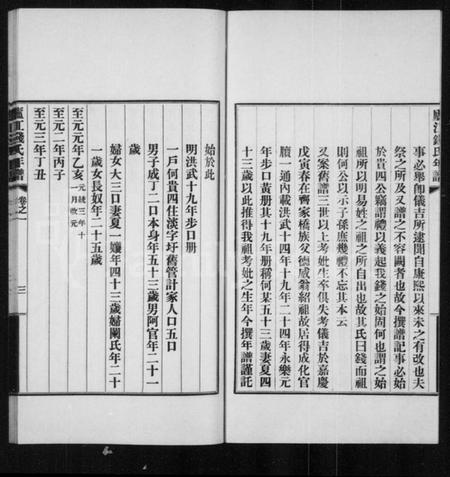 廬江錢氏年譜
事必舉卹儀吉所逮聞自康熙以來未之有改也夫
祭之所及又譜之不容闕者也故今撰譜記事必始
於貴四公竊謂禮以義起我錢之始固何也謂之始
祖所以明易姓之祖之所自出也故其氏曰錢而祖
則何公以示子孫庶幾禮不忘其本云
又案舊譜三世以上考妣生卒俱失考儀吉於嘉慶
戊寅春在齊家橋族父德威翁紹祖故居得成化官
牘一通內載洪武十四年十九年二十四年永樂元
年步口黃册其十九年册稱何某五十三歲妻夏四
十三歲以此推得我祖考妣之生年今撰年譜謹託
始於此
明洪武十九年步口册
一戶何貴四住淡字圩舊管計家人口五口
男子成丁二口本身年五十三歲男阿官年二十一
歲
婦女大三口妻夏一孃年四十三歲婦闕氏年二十
一歲女長奴年二十五歲
至元元年乙亥 元統三年十一月改元
至元二年丙子
至元三年丁丑
廬江錢氏年譜 卷之一 三